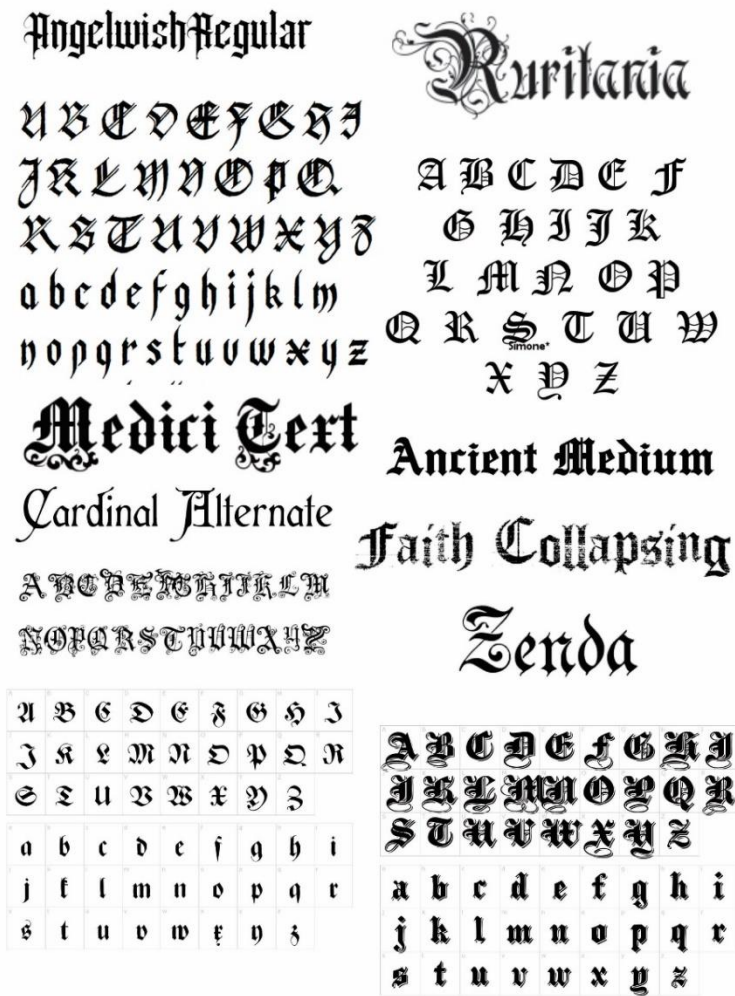 AngelwishRegular
A B C D E F G H I
J K L M N O P Q
R S T U V W X Y Z
a b c d e f g h i j k l m
n o p q r s t u v w x y z
Medici Text
Cardinal Alternate
A B C D E F G H I J K L M
N O P Q R S T U V W X Y Z
A B C D E F G H I
J K L M N O P Q R
S T U V W X Y Z
a b c d e f g h i
j k l m n o p q r
s t u v w x y z
Ruritania
A B C D E F
G H I J K
L M N O P
Q R S T U W
Simone*
X Y Z
Ancient Medium
Faith Collapsing
Zenda
A B C D E F G H I
J K L M N O P Q R
S T U V W X Y Z
a b c d e f g h i
j k l m n o p q r
s t u v w x y z